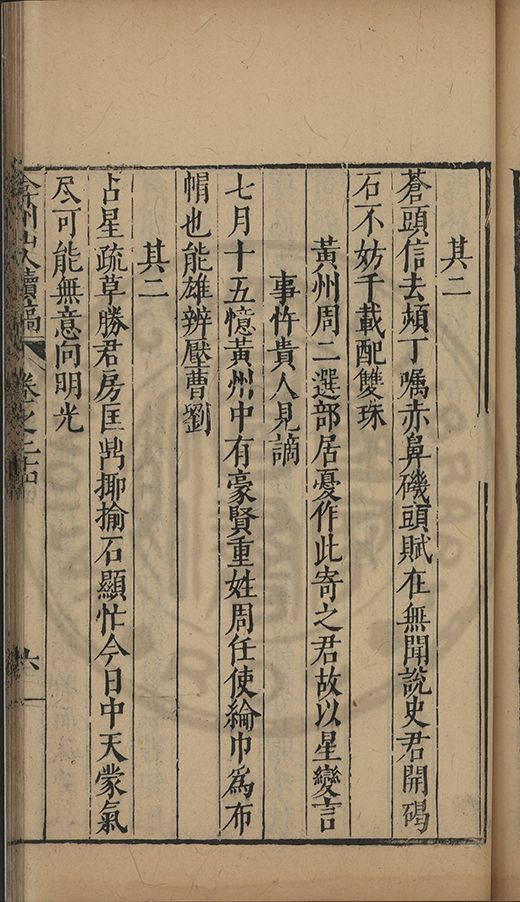 其二
蒼頭信去頻丁囑赤鼻磯頭賦在無聞說史君開碣
石不妨千載配雙珠
黃州周二選部居憂作此寄之君故以星變言
事忤貴人見謫
七月十五憶黃州中有豪賢重姓周任使綸巾爲布
帽也能雄辨壓曹劉
其二
占星疏草勝君房匡鼎揶揄石顯忙今日中天蒙氣
尽可能無意向明光
弇州山人續稿
卷之二十四
六